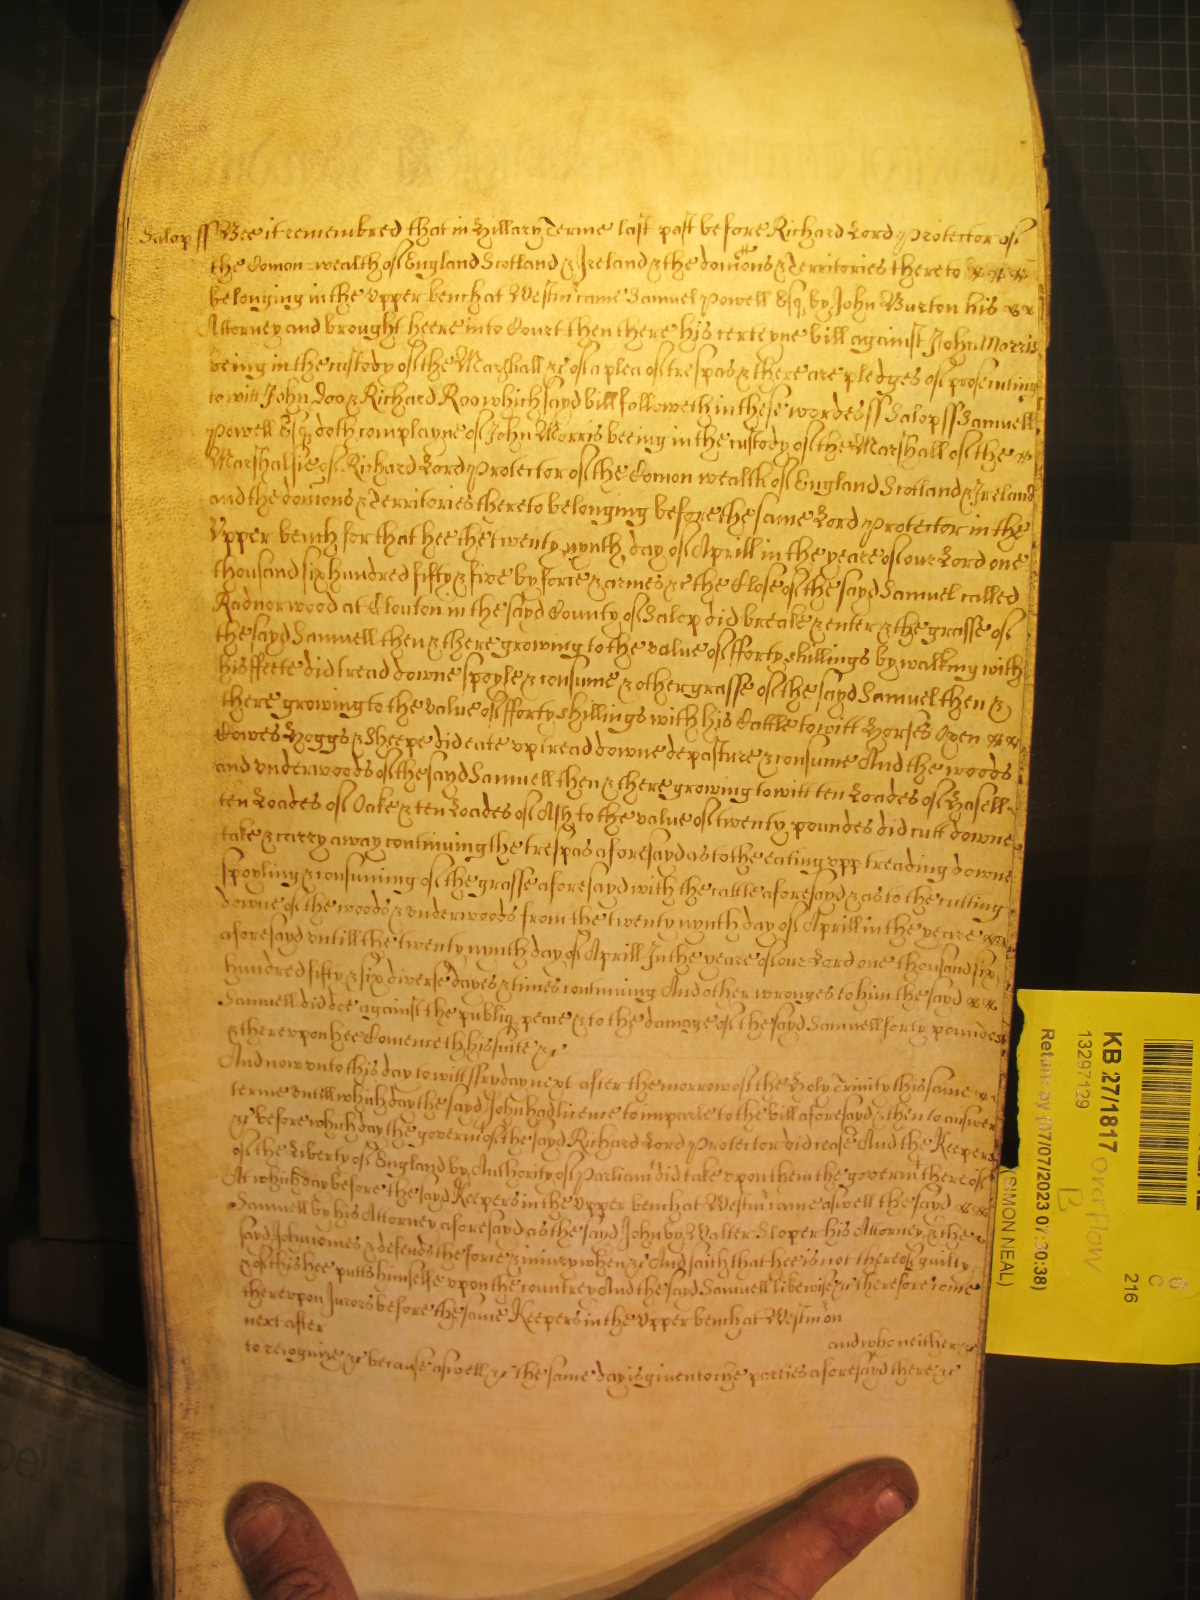 Salop ss Bee it remembred that in Hillary Terme last past before Richard Lord Protector of
the Comon-wealth of England Scotland & Ireland & the domons & Territories thereto
belonging in the Upper bench at Westm came Samuel Powell Esq by John Burton his
Attorney and brought heere into Court then there his certeyne bill against John Morris
being in the custody of the Marshall &c of a plea of trespas & there are pledges of prosecuting
to witt John Doo & Richard Roo which sayd bill followeth in these wordes ss Salop ss Samuell
Powell Esq doth complayne of John Morris beeing in the custody of the Marshall of the
Marshalsie of Richard Lord Protector of the Comon wealth of England Scotland & Ireland
and the domons & Territories thereto belonging before the same Lord Protector in the
Upper bench for that hee the twenty nynth day of Aprill in the yeare of our Lord one
thousand six hundred fifty & five by force & armes &c the Close of the sayd Samuel called
Radnor wood at Clouton in the sayd County of Salop did breake & enter & the grasse of
the sayd Samuell then & there growing to the value of fforty shillings by walking with
his ffeete did tread downe spoyle & consume & other grasse of the sayd Samuel then &
there growing to the value of fforty shillings with his Cattle to witt Horses Oxen
Cowes Hoggs & Sheepe did eate up tread downe depasture & consume And the woods
and underwoods of the sayd Samuell then & there growing to witt ten Loades of Hasell
ten Loades of Oake & ten Loades of Ash to the value of twenty poundes did cutt downe
take & carry away continuing the trespas aforesayd as to the eating upp treading downe
spoyling & consuming of the grasse aforesayd with the cattle aforesayd & as to the cutting
downe of the woods & underwoods from the twenty nynth day of Aprill in the yeare
aforesayd untill the twenty nynth day of Aprill In the yeare of our Lord one thousand six
hundred fifty & six diverse dayes & times continuing And other wronges to him the sayd
Samuell did doe against the publiq peace & to the damage of the sayd Samuell forty poundes
& thereupon hee Comenceth his suite &c
And now unto this day to witt ffryday next after the morrow of the Holy Trinity this same
terme untell which day the sayd John had licence to imparle to the bill aforesayd & then to answer
&c before which day the governm of the sayd Richard Lord Protector did cease And the Keepers
of the Liberty of England by Authority of Parliam did take upon them the governm thereof
At which day before the sayd Keepers in the Upper bench at Westm came aswell the sayd
Samuell by his Attorney aforesayd as the sayd John by Walter Sloper his Attorney & the
sayd John comes & defends the force & iniury when &c And saith that hee is not thereof guilty
& of this hee putts himselfe upon the countrey And the sayd Samuell likewise &c therefore come
thereupon Jurors before the same Keepers in the Upper bench at Westmon
next after and who neither &c
to recognize &c because aswell &c the same day is given to the parties aforesayd there &c
KB 27/1817
13297129
Return by (07/07/2023 07:30:38)
(SIMON NEAL)
overflow
B
6
C
216